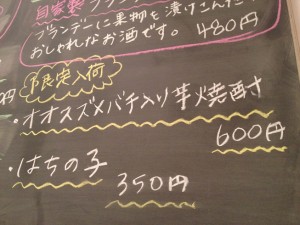 自家製ブラン
ブランデーに果物を漬けこんだ
おしゃれなお酒です。 480円
限定入荷
・オオスズメバチ入り芋焼酎
600円
・はちの子
350円